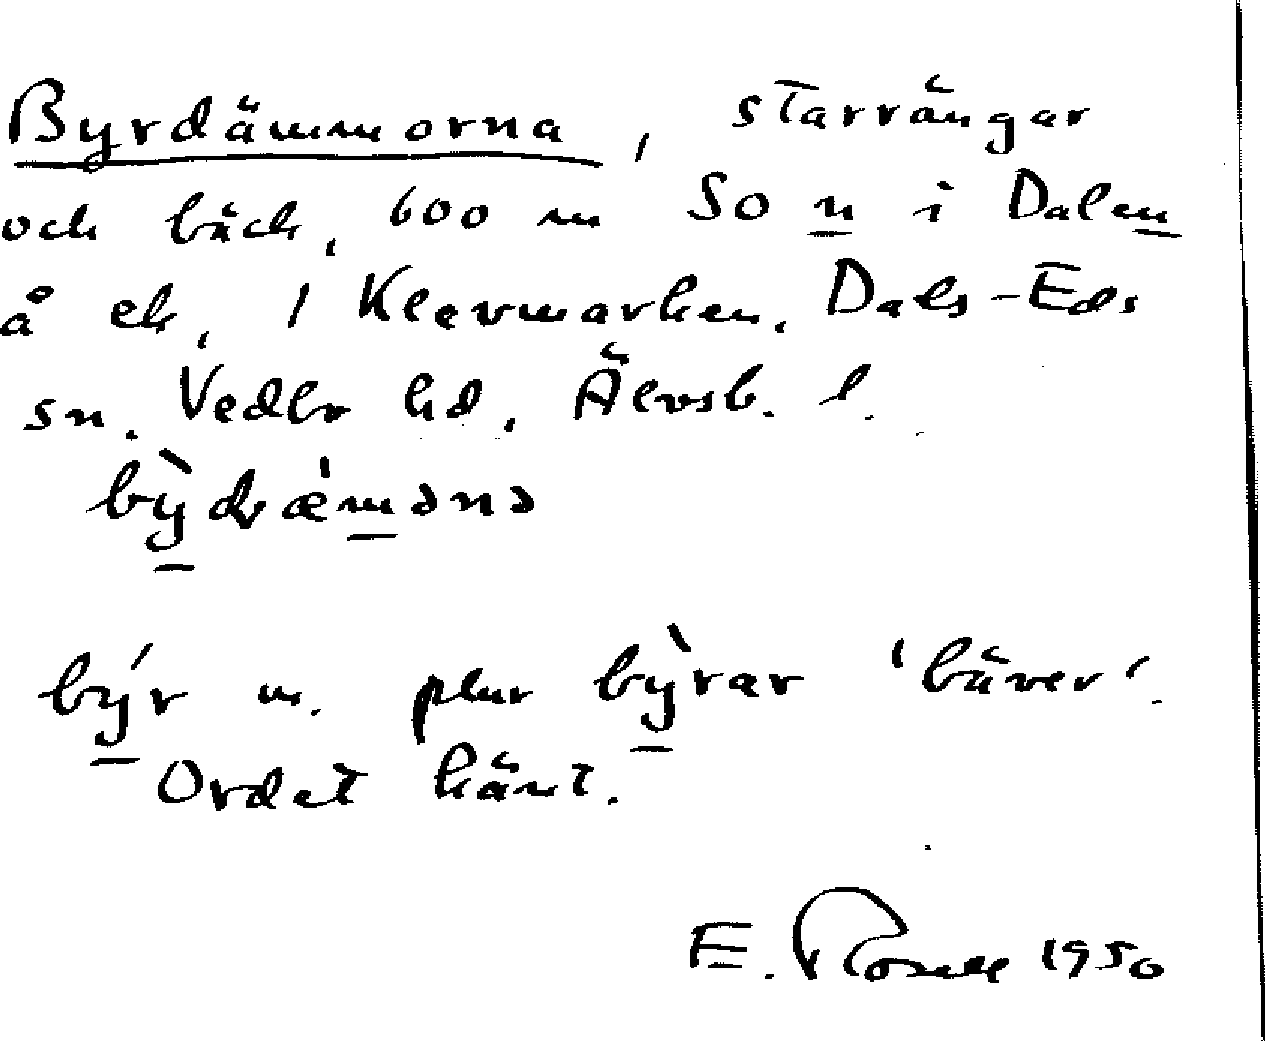 Byrdämmorna, starrängar
och bäck, 600 m SO n i Dalen
å ek, / Klevmarken. Dals-Eds
sn. Vedbo hd, Älvsb. l.
bỳdræ̀mənə
býr m. plur bỳrar 'bäver'.
Ordet känt.
E. Rosell 1950